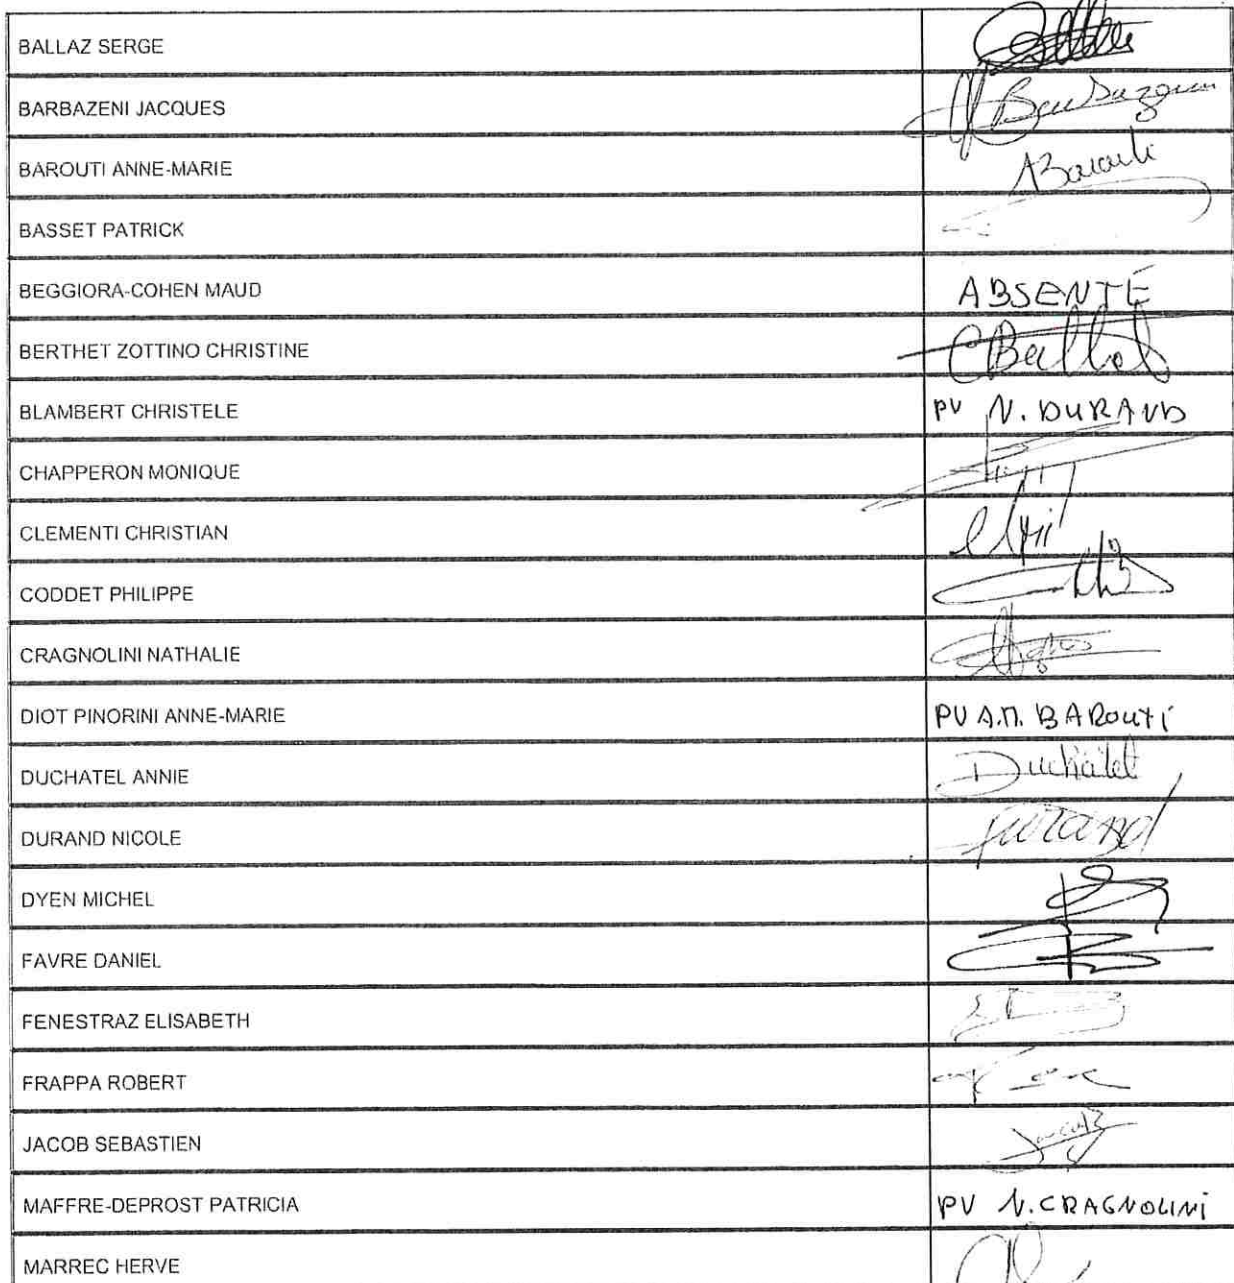 BALLAZ SERGE
BARBAZENI JACQUES
BAROUTI ANNE-MARIE ABarouti
BASSET PATRICK
BEGGIORA-COHEN MAUD ABSENTE
BERTHET ZOTTINO CHRISTINE
BLAMBERT CHRISTELE PV N. DURAND
CHAPPERON MONIQUE
CLEMENTI CHRISTIAN
CODDET PHILIPPE
CRAGNOLINI NATHALIE
DIOT PINORINI ANNE-MARIE PV A.M. BAROUTI
DUCHATEL ANNIE Duchatel
DURAND NICOLE Durand
DYEN MICHEL
FAVRE DANIEL
FENESTRAZ ELISABETH
FRAPPA ROBERT
JACOB SEBASTIEN Jacob
MAFFRE-DEPROST PATRICIA PV N. CRAGNOLINI
MARREC HERVE